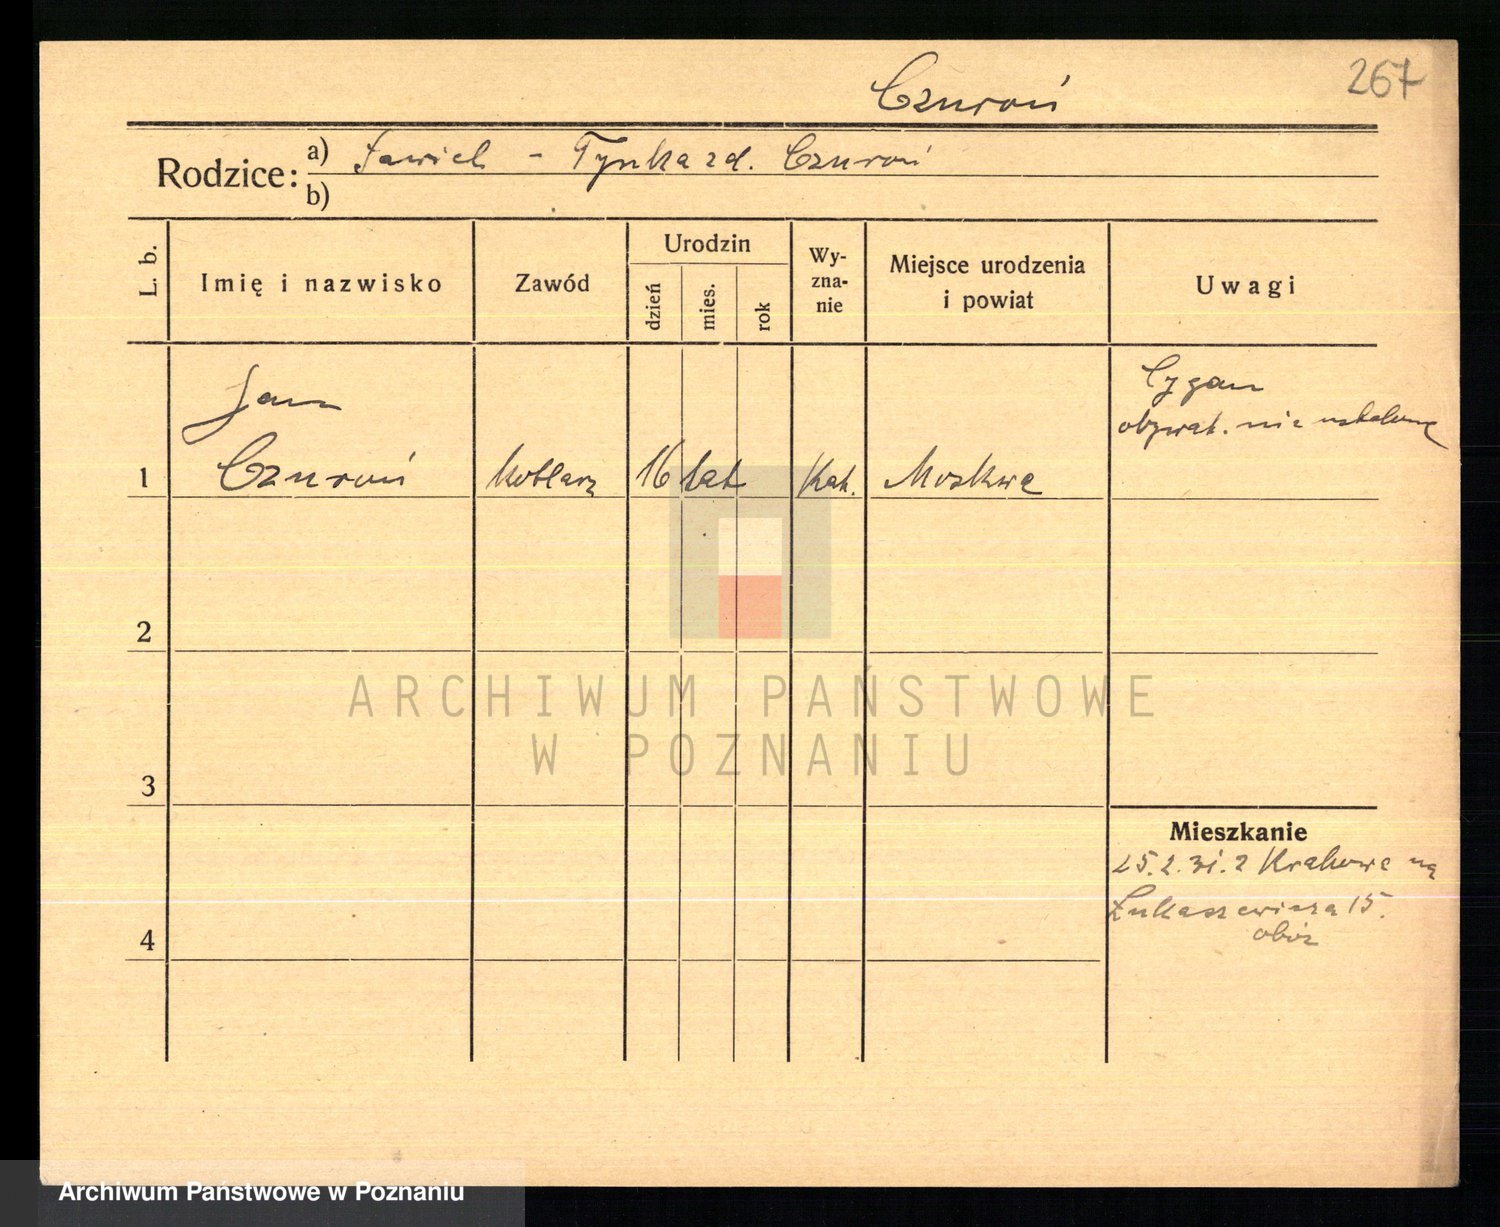 267
Czuroń
Rodzice: a) - Tynka zd. Czuroń
b)
L. b.
Imię i nazwisko
Zawód
Urodzin
dzień
mies.
rok
Wy-
zna-
nie
Miejsce urodzenia
i powiat
Uwagi
Jan
Cygan
obywat. nie ustalone
1 Czuroń kotlarz 16 lat Kat. Moskwa
2
ARCHIWUM PAŃSTWOWE
W POZNANIU
3
Mieszkanie
25.2.31. z Krakowa na
Łukaszewicza 15.
obóz
4
Archiwum Państwowe w Poznaniu